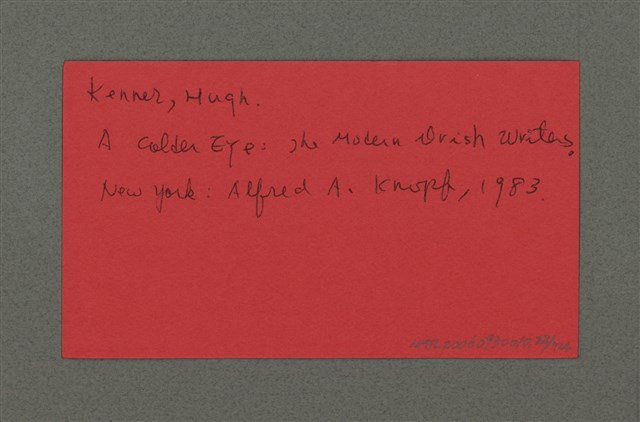 Kenner, Hugh.
A Colder Eye: The Modern Irish Writers.
New York: Alfred A. Knopf, 1983.